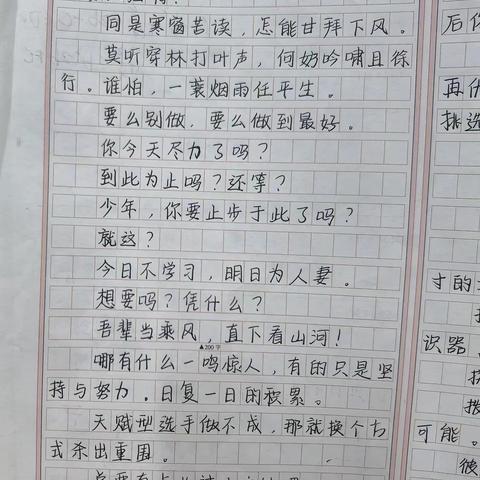 同是寒窗苦读，怎能甘拜下风。
莫听穿林打叶声，何妨吟啸且徐
行。谁怕，一蓑烟雨任平生。
要么别做，要么做到最好。
你今天尽力了吗？
到此为止吗？还等？
少年，你要止步于此了吗？
就这？
今日不学习，明日为人妻。
想要吗？凭什么？
吾辈当乘风，直下看山河！
▲200字
哪有什么一鸣惊人，有的只是坚
持与努力。日复一日的积累。
天赋型选手做不成，那就换个方
式杀出重围。
后
再
挑选
才的
识器
可能。